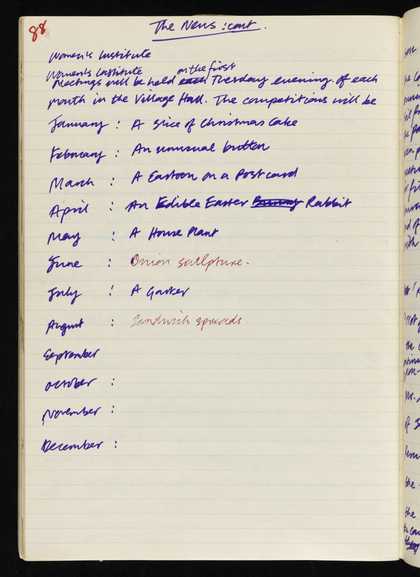 88
The News : cont.
Women's Institute
Women's Institute on the first
Meetings will be held each Tuesday evening of each
month in the Village Hall. The competitions will be
January : A slice of Christmas Cake
February : An unusual button
March : A Cartoon on a Postcard
April : An Edible Easter Bunny Rabbit
May : A House Plant
June : Onion sculpture.
July : A Garter
August : Sandwich spreads
September
October :
November :
December :